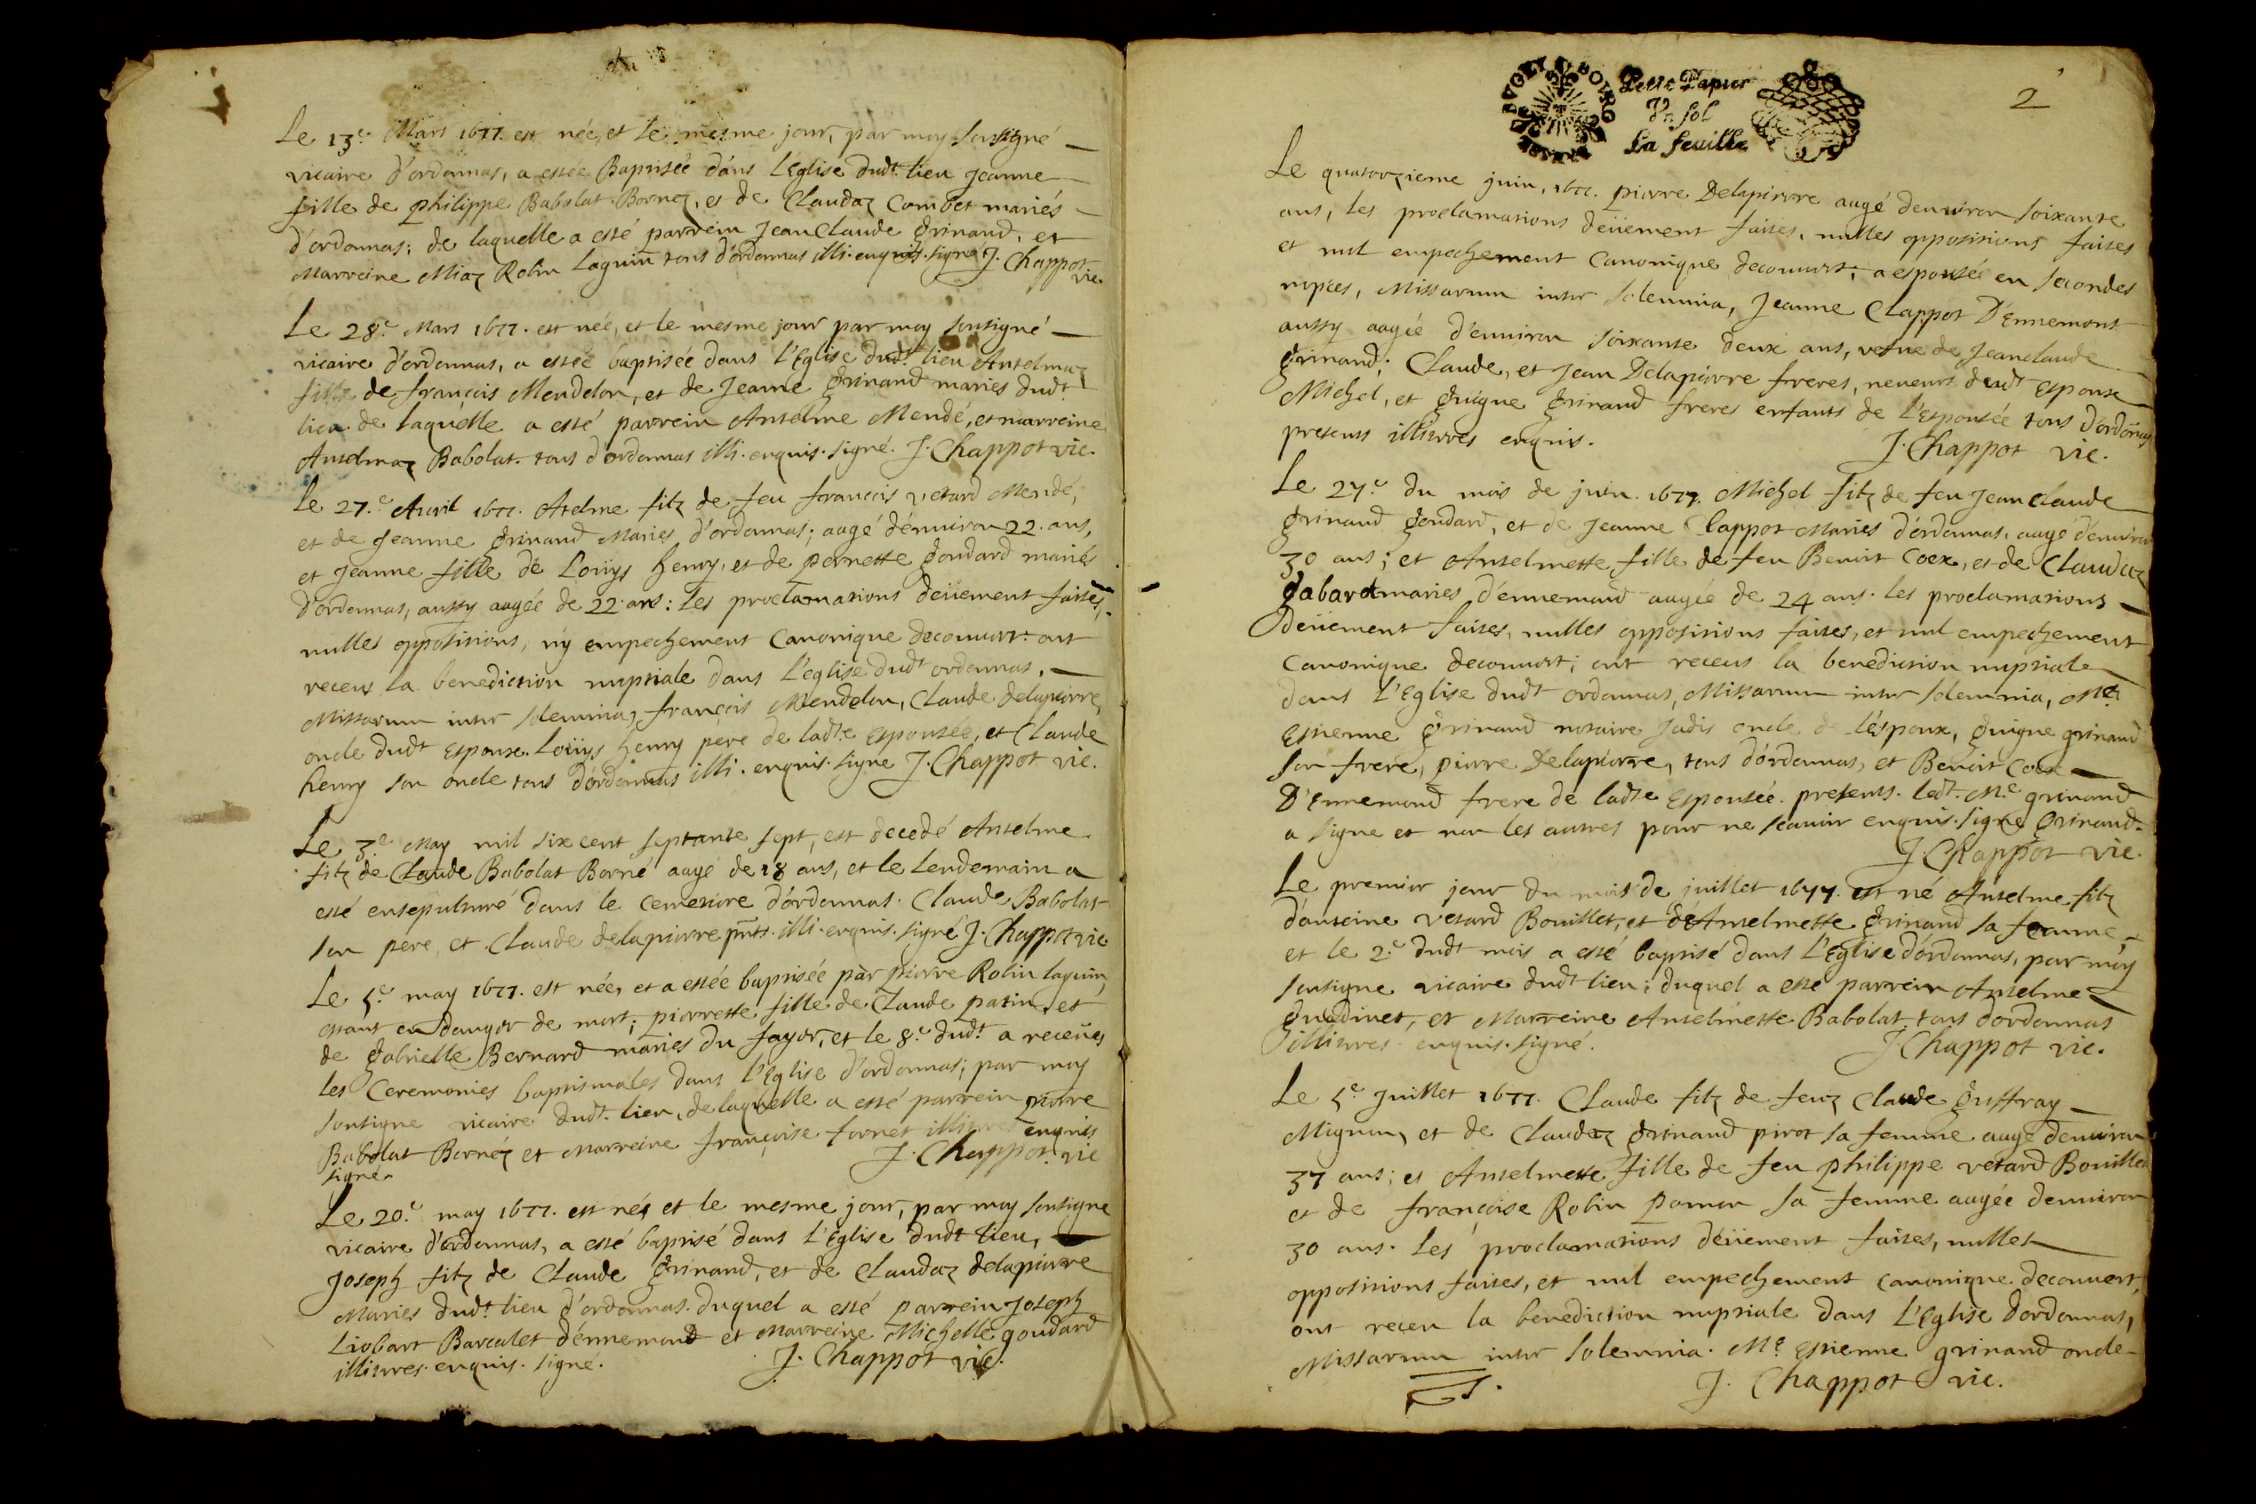 Le 13e. Mars 1677. est née, et le mesme jour, par moy sousigné
vicaire d'ordonnas, a estée Baptisée dans l'Eglise dudt. lieu Jeanne
fille de philippe Babolat Bornez, et de Claudaz Combet mariés
d'ordonnas; de laquelle a esté parrein Jean Claude Grinand, et
Marreine Miaz Robin Laguin tous d'ordonnas illi. enquis. signé J. Chappot
vic.
Le 28e. Mars 1677. est née, et le mesme jour par moy sousigné
vicaire d'ordonnas, a estée baptisée dans l'Eglise dudt. lieu Antelmaz
fille de françois Mendelon, et de Jeanne Grinand maries dudt
lieu. de laquelle a esté parrein Antelme Mendé, et marreine
Antelmaz Babolat. tous d'ordonnas illi. enquis. signé. J. Chappot vic.
Le 27.e Auril 1677. Atelme fitz de feu françois vetard Mendé,
et de Jeanne Grinand Maries d'ordonnas; aagé d'enuiron 22. ans,
et Jeanne fille de Loüys henry, et de pernette Goudard mariés
d'ordonnas, aussy aagée de 22. ans: les proclamations deüement faites,
nulles oppositions, ny empechement Canonique decouuert. ont
receus la benediction nuptiale dans l'eglise dudt ordonnas.
Missarum inter solemnia, françois Mendelon, Claude delapierre,
oncle dudt Espoux. Loüys henry pere de ladte Espousée, et Claude
henry son oncle tous d'ordonnas illi. enquis. signe J. Chappot vic.
Le 3.e May mil six cent septante sept, est decedé Antelme
fitz de Claude Babolat Borné aagé de 18 ans, et le Lendemain a
esté ensepulturé dans le cemetiere d'ordonnas. Claude Babolat
son pere, et Claude delapierre pnts. illi. enquis. signé J. Chappot vic
Le 5.e may 1677. est née, et a estée baptisée par pierre Robin laguin,
estant en danger de mort, pierrette fille de Claude patin, et
de Gabrielle Bernard maries du fayer, et le 8.e dudt. a receües
les Ceremonies baptismales dans l'Eglise d'ordonnas; par moy
sousigne vicaire dudt. lieu, de laquelle a esté parrein pierre
Babolat Bornéz et Marreine françoise fornet enquis
signé. J. Chappot. vic
Le 20.e may 1677. est né, et le mesme jour, par moy sousigne
vicaire d'ordonnas, a esté baptisé dans l'Eglise dudt lieu,
Joseph fitz de Claude Grinand, et de Claudaz delapierre
Maries dudt. lieu d'ordonnas. duquel a esté parrein Joseph
Liobart Barculet d'ennemond et Marreine Michelle goudard
illiteres. enquis. signé. J. Chappot vic.
BVGEY BOVRG
Petit Papier
Vn sol
La feuille
2
Le quatorzieme juin, 1677. pierre Delapierre aagé denuiron soixante
ans, les proclamations deüement faites, nulles oppositions faites
et nul empechement Canonique decouuert; a espousée en secondes
nopces, Missarum inter solemnia, Jeanne Clappot D'Ennemont
aussy aagée d'enuiron soixante deux ans, vefue de Jeanclaude
Grinand; Claude, et Jean Delapierre freres, neueus dudt Espoux
Michel, et Guigue Grinand freres enfants de l'Espousée tous d'ordonnas
presents illiteres enquis. J. Chappot vic.
Le 27.e du mois de juin. 1677. Michel fitz de feu Jean Claude
Grinand Goudard, et de Jeanne Clappot Maries d'ordonnas. aagé d'enuiron
30 ans; et Antelmette fille de feu Benoit Coex, et de Claudaz
Gabard maries d'ennemond aagée de 24 ans. les proclamations
Deüement faites, nulles oppositions faites, et nul empechement
Canonique decouuert; ont receus la benediction nuptiale
dans l'Eglise dudt ordonnas, Missarum inter solemnia, Me
Estienne Grinand notaire Jadis oncle de l'espoux, Guigue grinand
son frere, pierre Delapierre, tous d'ordonnas, et Benoit Coex
D'Ennemond frere de ladte Espousée. presents. ledt. Me grinand
a signe et non les autres pour ne scauoir enquis. signe Grinand.
J. Chappot vic.
Le premier jour du mois de juillet 1677. est né Antelme fitz
d'antoine vetard Bouillet, et d'Antelmette Grinand sa femme,
et le 2.e dudt mois a esté baptisé dans l'Eglise d'ordonnas, par moy
sousigne vicaire dudt lieu; duquel a esté parrein Antelme
Guedinet, et Marreine Antelmette Babolat tous d'ordonnas
illiteres. enquis. signé. J Chappot vic.
Le 5.e Juillet 1677. Claude fitz de feuz Claude Guffray
Mignon, et de Claudaz Grinand pirot sa femme aagé denuiron
37 ans; et Antelmette fille de feu philippe vetard Bouillet
et de françoise Robin Pomon sa femme aagée denuiron
30 ans. les proclamations deüement faites, nulles
oppositions faites, et nul empechement canonique decouuert,
ont receu la benediction nuptiale dans l'Eglise d'ordonnas,
Missarum inter solemnia. Me Estienne grinand oncle
J. Chappot vic.